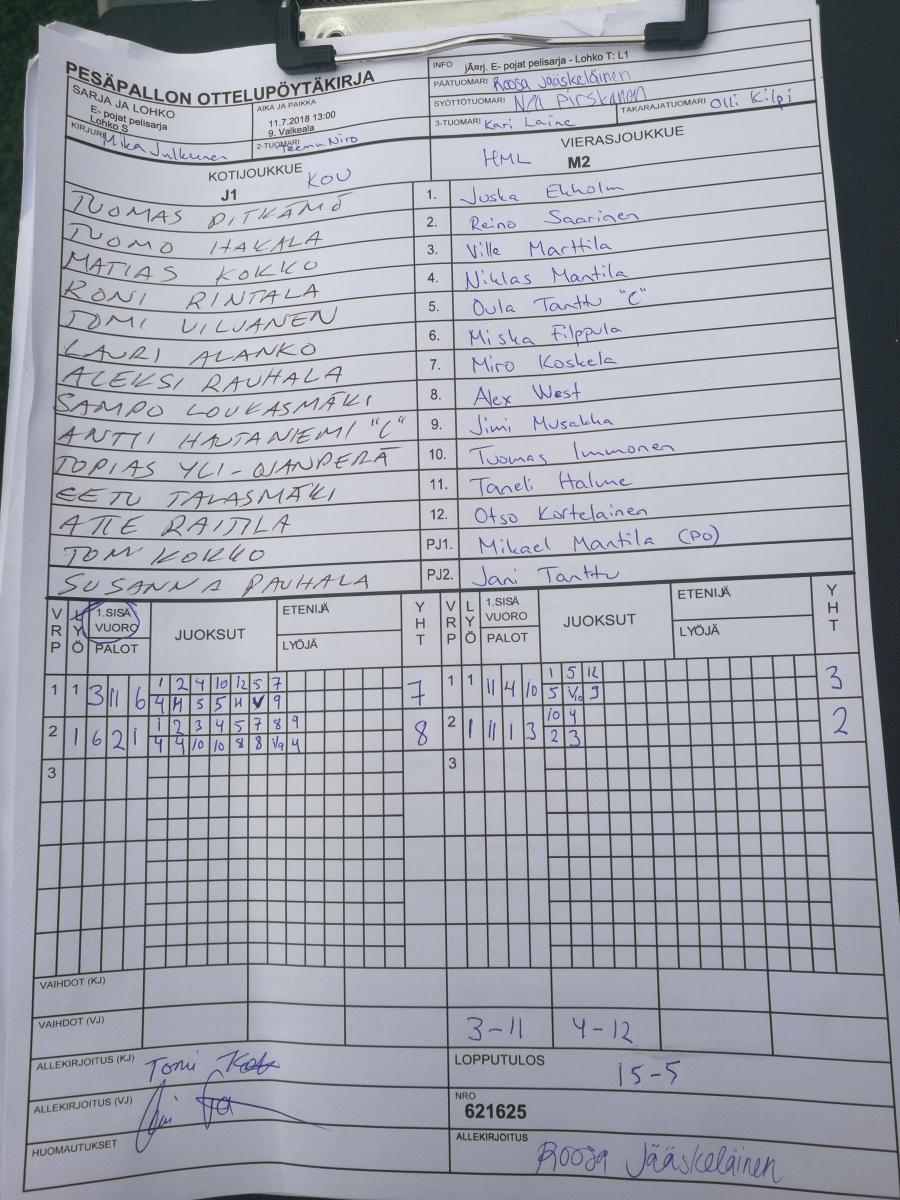 PESÄPALLON OTTELUPÖYTÄKIRJA
INFO jÃ¤rj. E- pojat pelisarja - Lohko T: L1
PÄÄTUOMARI Roosa Jääskeläinen
SYÖTTÖTUOMARI
3-TUOMARI Kari Laine TAKARAJATUOMARI Olli Kilpi
SARJA JA LOHKO
E- pojat pelisarja
Lohko S
AIKA JA PAIKKA
11.7.2018 13:00
9. Valkeala
KIRJURI Mika Julkunen
2-TUOMARI Teemu Niro
KOTIJOUKKUE KOU
J1
VIERASJOUKKUE
HML M2
TUOMAS PITKÄMÖ 1. Juska Ekholm
TUOMO HAKALA 2. Reino Saarinen
MATIAS KOKKO 3. Ville Marttila
RONI RINTALA 4. Niklas Mantila
TOMI VILVANEN 5. Oula Tanttu "C"
LAURI ALANKO 6. Miska Filppula
ALEKSI RAUHALA 7. Miro Koskela
SAMPO LOUKASMÄKI 8. Alex West
ANTTI HAUTANIEMI "C" 9. Jimi Musakka
TOPIAS YLI-OJANPERÄ 10. Tuomas Immonen
EETU TALASMÄKI 11. Taneli Halme
ATTE RAITILA 12. Otso Kortelainen
TONI KOKKO PJ1. Mikael Mantila (PO)
SUSANNA RAUHALA PJ2. Jani Tanttu
VRP LYÖ 1.SISÄ VUORO PALOT JUOKSUT ETENIJÄ LYÖJÄ YHT VRP LYÖ 1.SISÄ VUORO PALOT JUOKSUT ETENIJÄ LYÖJÄ YHT
1 1 3 11 6 1 2 4 10 12 5 7 7 1 1 11 4 10 1 5 12 3
4 H 5 5 H V 9 5 V10 9
2 1 6 2 1 1 2 3 4 5 7 8 9 8 2 1 11 1 3 10 4 2
4 4 10 10 8 8 V9 4 2 3
3 3
VAIHDOT (KJ)
VAIHDOT (VJ) 3-11 4-12
ALLEKIRJOITUS (KJ) Toni
LOPPUTULOS
15-5
ALLEKIRJOITUS (VJ)
NRO
621625
HUOMAUTUKSET
ALLEKIRJOITUS
Roosa Jääskeläinen